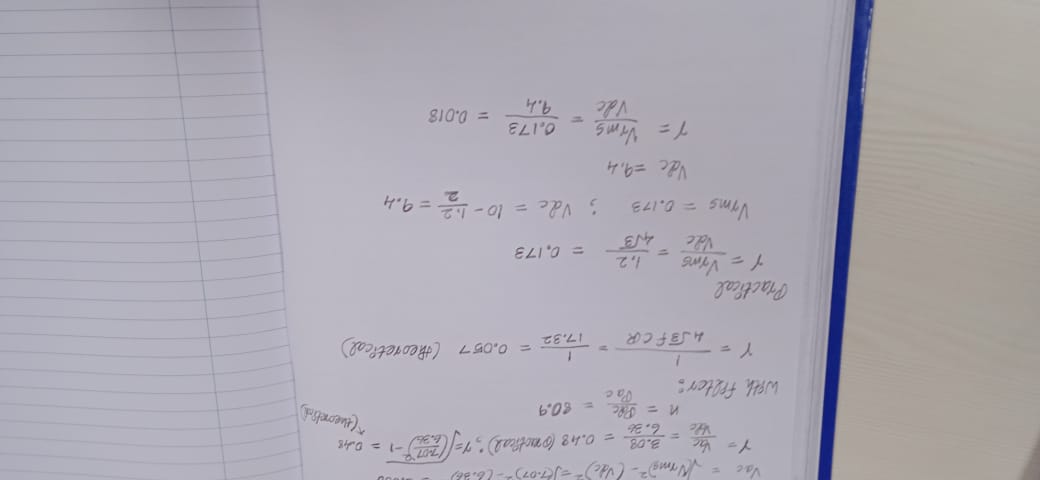 Vac = √(Vrms)² - (Vdc)² = √(7.07)² - (6.36)²
γ = Vac/Vdc = 3.08/6.36 = 0.48 (practical); γ = √(7.07/6.36)² - 1 = 0.48 (theoretical)
n = Pdc/Pac = 80.9
With filter:
γ = 1/4√3 f C R = 1/17.32 = 0.057 (theoretical)
Practical
γ = Vrms/Vdc = 1.2/4√3 = 0.173
Vrms = 0.173 ; Vdc = 10 - 1.2/2 = 9.4
Vdc = 9.4
γ = Vrms/Vdc = 0.173/9.4 = 0.018